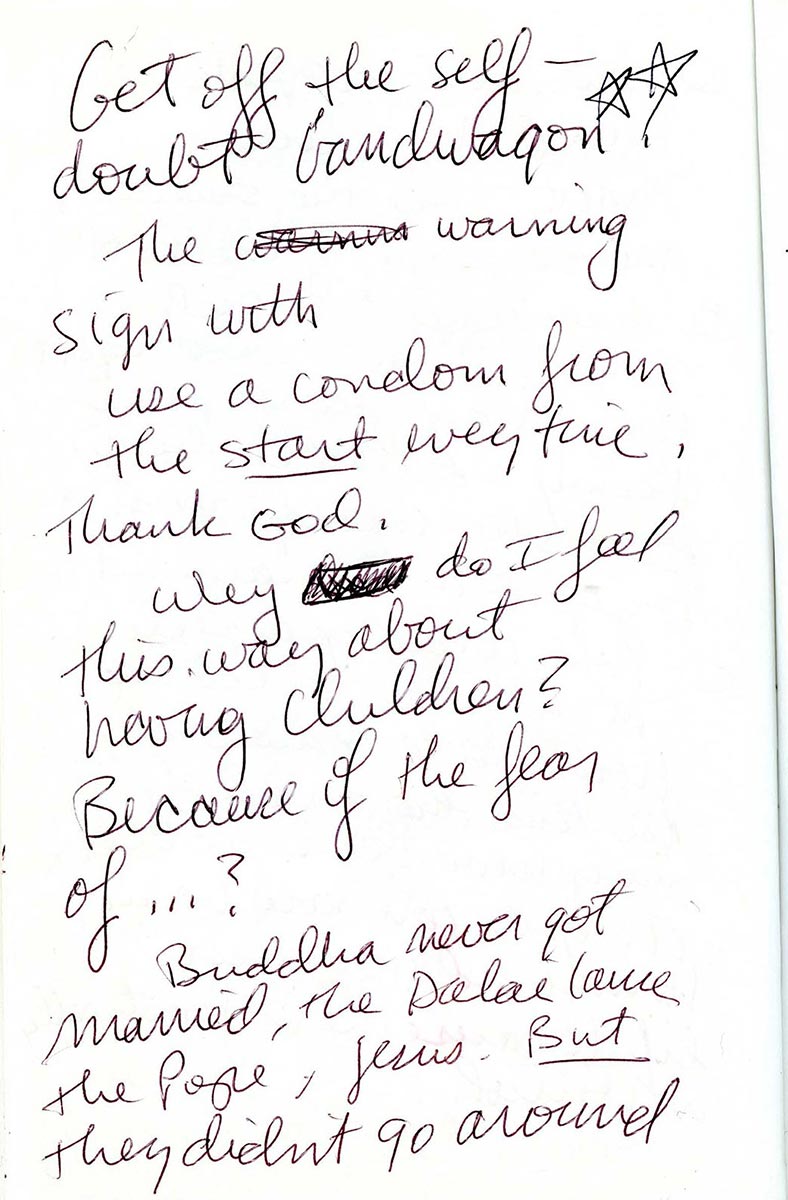 Get off the self-
doubt bandwagon!
The warning
sign with
use a condom from
the start every time.
Thank God.
Why do I feel
this way about
having children?
Because of the fear
of ...?
Buddha never got
married, the Dalai Lama
the Pope, Jesus. But
they didn't go around